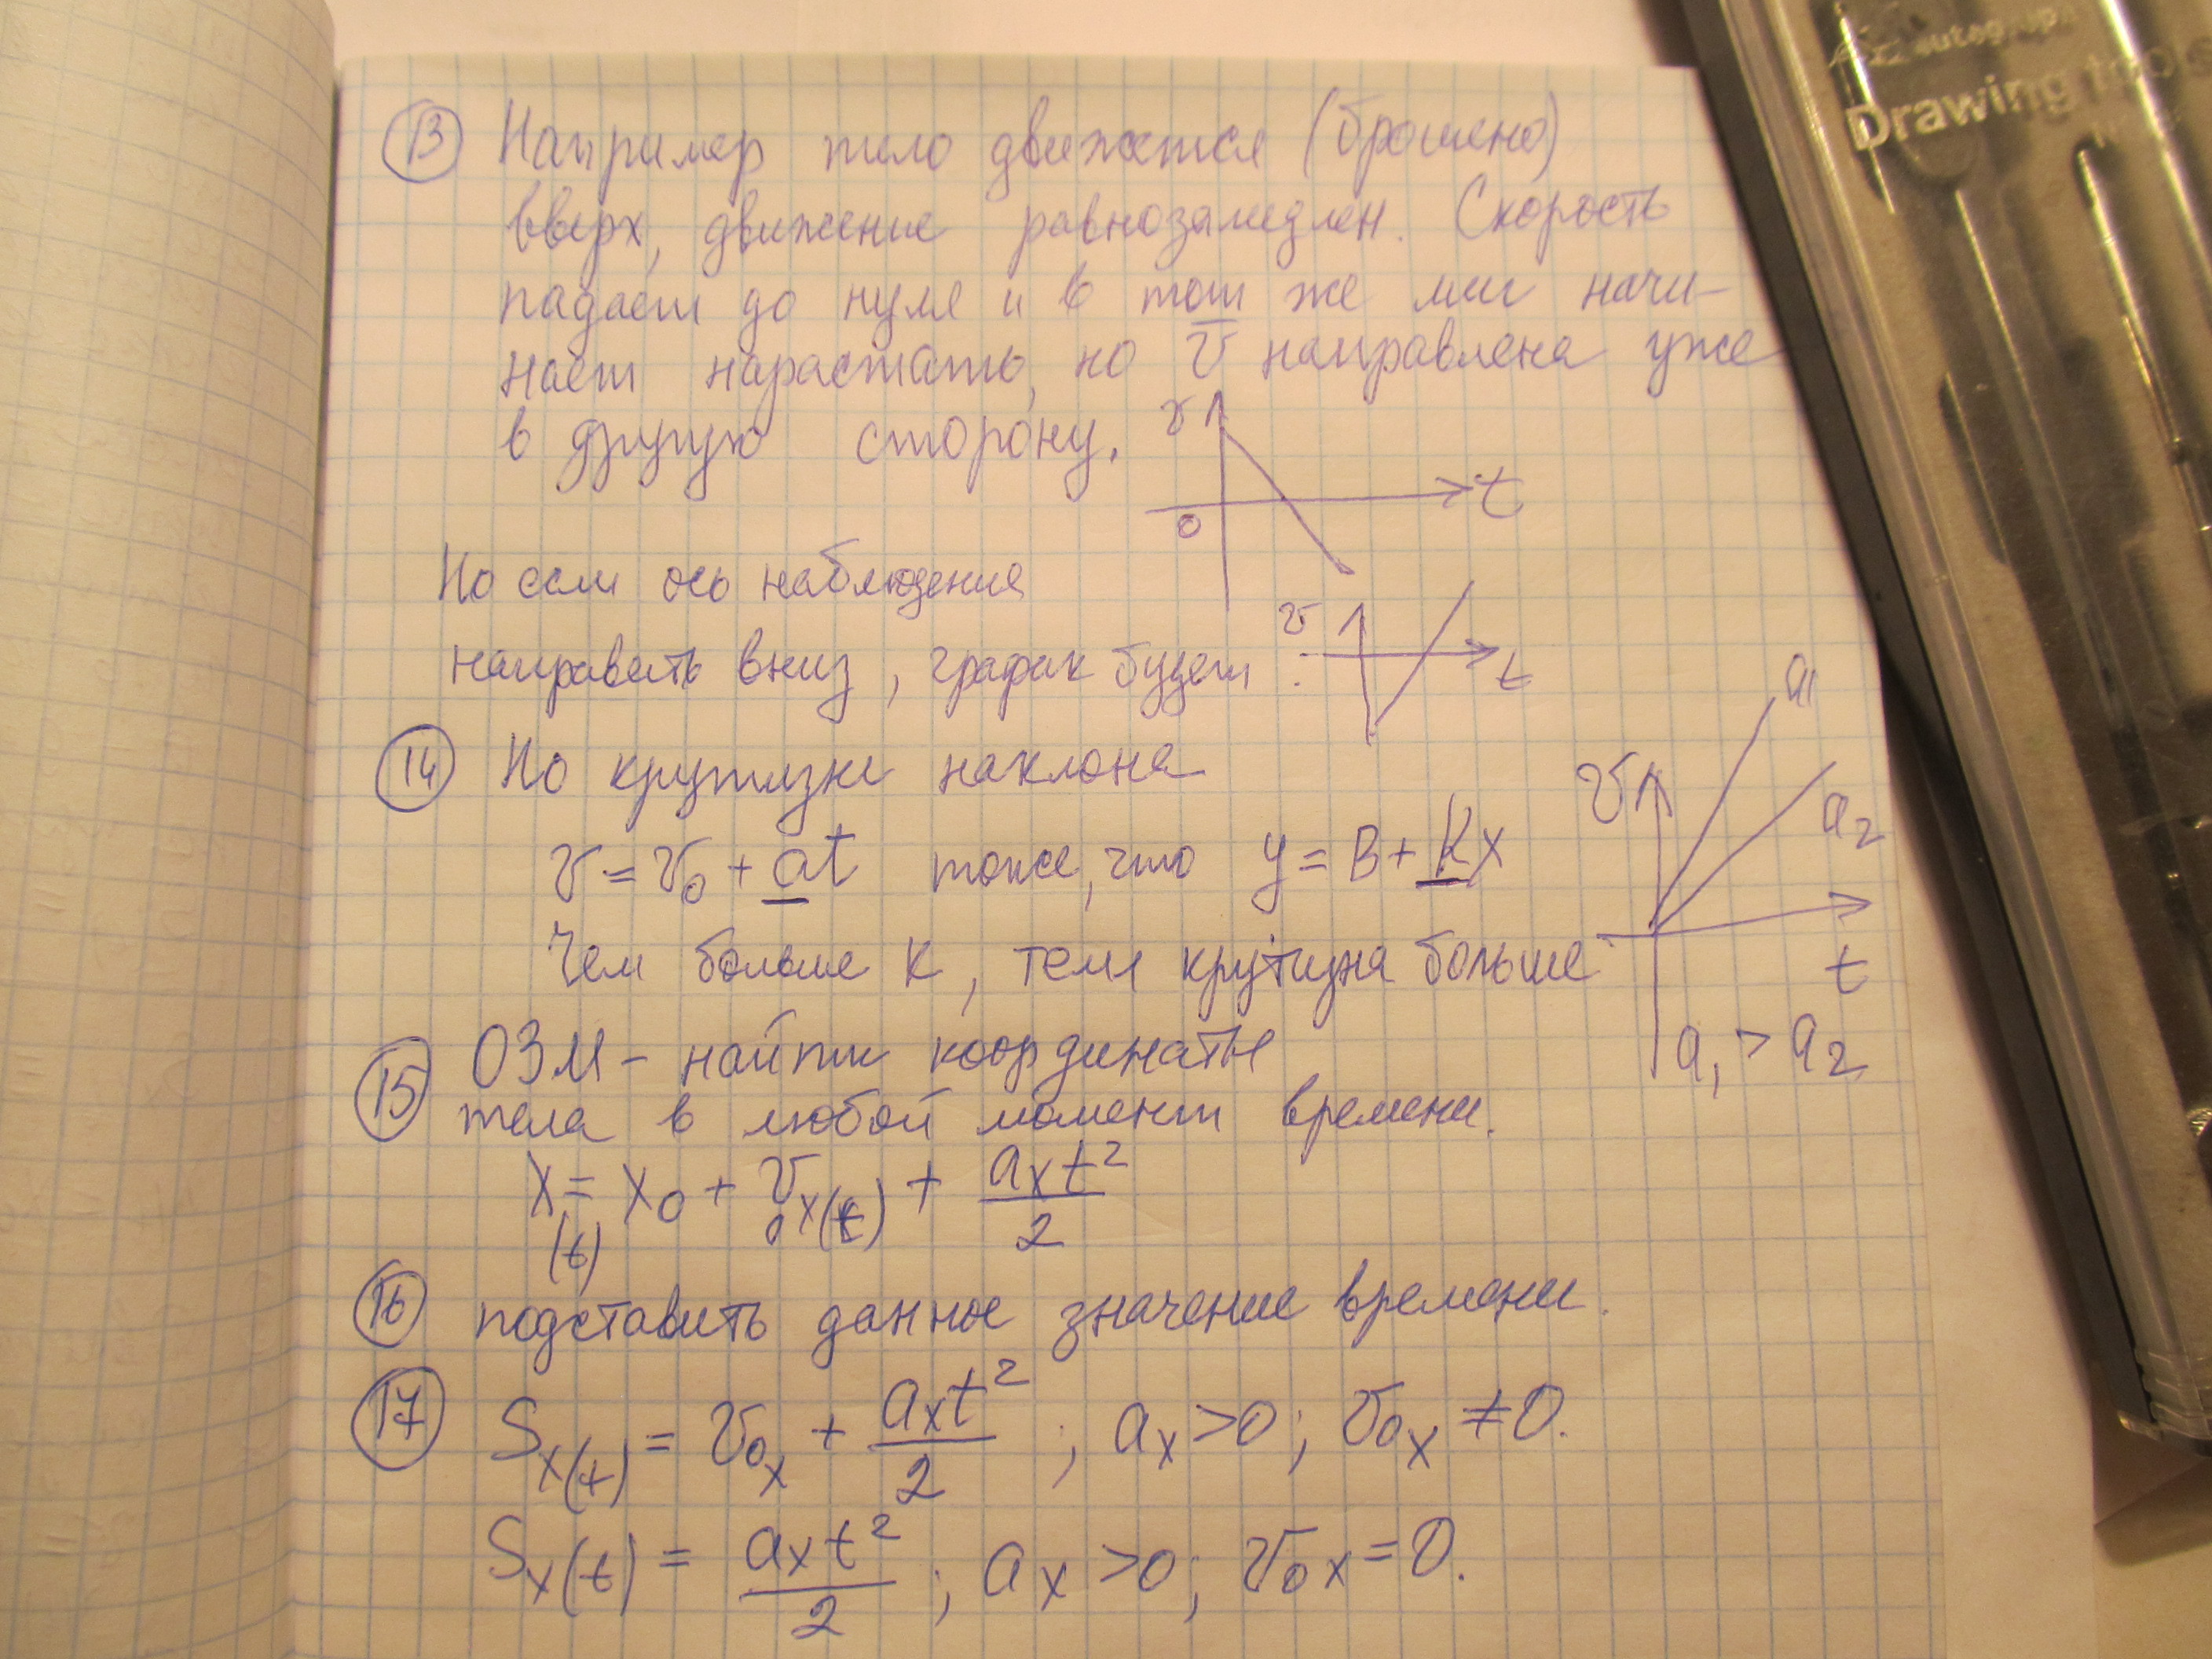 autograph
Drawing tools
13 Например тело движется (брошено)
вверх, движение равнозамедлен. Скорость
падает до нуля и в тот же миг начи-
нает нарастать, но v̅ направлена уже
в другую сторону.
v
t
0
Но если ось наблюдения
направить вниз, график будет :
v
t
14 По крутизне наклона
v = v₀ + at тоже, что y = B + Kx
Чем больше K, тем крутизна больше
v
a₁
a₂
t
a₁ > a₂
15 ОЗМ - найти координаты
тела в любой момент времени.
x(t) = x₀ + v₀x(t) + aₓt²/2
16 подставить данное значение времени.
17 Sx(t) = v₀x + aₓt²/2 ; aₓ>0; v₀x ≠ 0.
Sx(t) = aₓt²/2 ; aₓ >0; v₀x = 0.